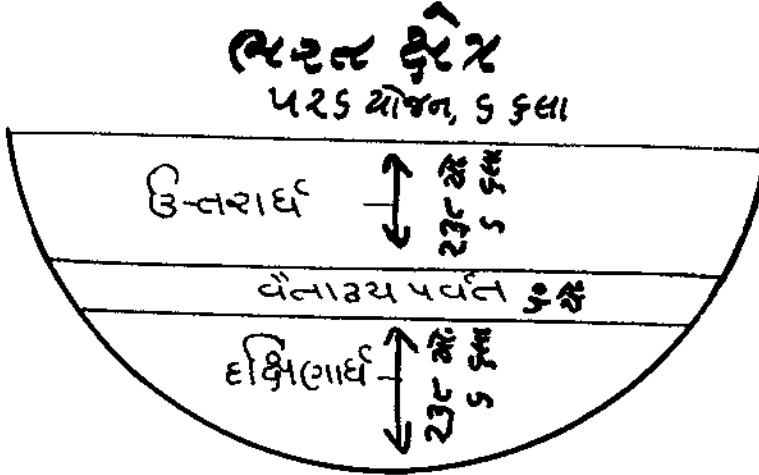 ભરત ક્ષેત્ર
૫૨૬ યોજન, ૬ કલા
ઉત્તરાર્ધ
૨૩૮ યો.
૬ કલા
વૈતાઢ્ય પર્વત ૫૦ યો.
દક્ષિણાર્ધ
૨૩૮ યો.
૬ કલા